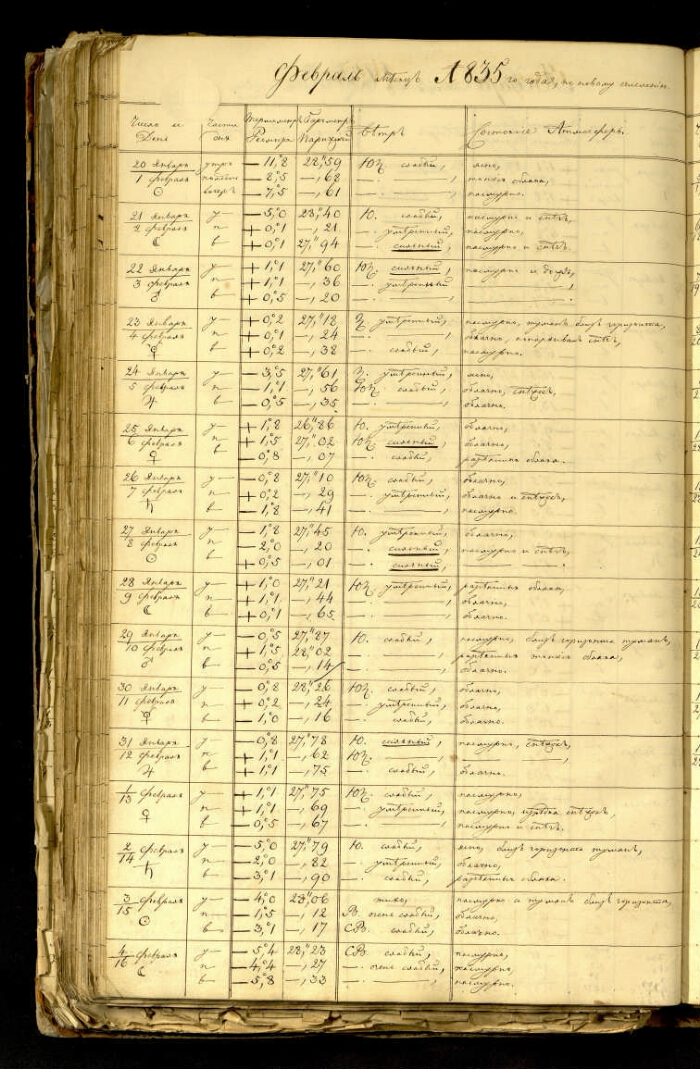 Февраль месяцъ 1835го года, по новому
Числа и Дни Части дня Термометръ Реомюра Барометръ Парижскій Вѣтръ Состояніе Атмосферы
20 Января утро — 11,°8 28,"59 ЮЗ. слабый, ясно,
1 Февраля — 2,°5 —, 68 — . ———, тонкія облака,
☉ вечеръ — 7,°5 —, 61 — . ———, пасмурно.
21 Января у — 5,°0 28,"40 Ю. слабый, пасмурно и снѣгъ,
2 Февраля п + 0,°1 —, 21 — . умѣренный, пасмурно,
☾ в + 0,°1 27,"94 — . сильный, пасмурно и снѣгъ.
22 Января у + 1,°1 27,"60 ЮЗ. сильный, пасмурно и дождь,
3 Февраля п + 1,°1 —, 36 — . умѣренный ———,
♂ в + 0,°5 —, 20 — . ——— ———.
23 Января у + 0,°2 27,"12 З. умѣренный, пасмурно, туманъ близъ горизонта,
4 Февраля п + 0,°1 —, 24 — . ———, облачно, снѣгъ,
☿ в + 0,°2 —, 38 — . слабый, пасмурно.
24 Января у — 3,°5 27,"61 З. умѣренный, ясно,
5 Февраля п — 1,°1 —, 56 ЮЗ. слабый, облачно, снѣгъ,
♃ в — 0,°5 —, 35 — . ———, облачно.
25 Января у + 1,°8 26,"86 Ю. умѣренный, облачно,
6 Февраля п + 1,°5 27,"02 ЮЗ. сильный, облачно,
♀ в — 0,°8 —, 07 — . слабый, облака.
26 Января у — 0,°8 27,"10 ЮЗ. слабый, облачно,
7 Февраля п + 0,°2 —, 29 — . умѣренный, облачно и снѣгъ,
♄ в — 1,°8 —, 41 — . ———, пасмурно.
27 Января у — 1,°8 27,"45 Ю. умѣренный, облачно,
8 Февраля п — 2,°0 —, 20 — . сильный, пасмурно и снѣгъ,
☉ в + 0,°5 —, 01 — . сильный, ———.
28 Января у + 1,°0 27,"21 ЮЗ. умѣренный, облака,
9 Февраля п + 1,°1 —, 44 — . ———, облачно,
☾ в + 0,°1 —, 65 — . ———, облачно.
29 Января у — 0,°5 27,"87 Ю. слабый, пасмурно, близъ горизонта туманъ,
10 Февраля п + 1,°5 28,"02 — . ———, тонкія облака,
♂ в — 0,°5 —, 14 — . ———, облачно.
30 Января у — 0,°8 28,"26 ЮЗ. слабый, облачно,
11 Февраля п + 0,°2 —, 24 — . умѣренный, облачно,
☿ в — 1,°0 —, 16 — . слабый, облачно.
31 Января у — 0,°8 27,"78 Ю. сильный, пасмурно, снѣгъ,
12 Февраля п + 1,°1 —, 62 ЮЗ. ———, ———,
♃ в + 1,°1 —, 75 — . слабый, облачно.
1/13 Февраля у + 1,°1 27,"75 ЮЗ. слабый, пасмурно,
♀ п + 1,°1 —, 69 — . умѣренный, пасмурно, снѣгъ,
в — 0,°5 —, 67 — . ———, пасмурно и снѣгъ.
2/14 Февраля у — 5,°0 27,"79 Ю. слабый, ясно, близъ горизонта туманъ,
♄ п — 2,°0 —, 82 — . умѣренный, облачно,
в — 3,°1 —, 90 — . слабый, облака.
3/15 Февраля у — 4,°0 28,"06 тихо, пасмурно и туманъ близъ горизонта,
☉ п — 1,°5 —, 12 В. очень слабый, облачно,
в — 3,°1 —, 17 СВ. слабый, облачно.
4/16 Февраля у — 5,°4 28,"23 СВ. слабый, пасмурно,
☾ п — 4,°4 —, 27 — . очень слабый, пасмурно,
в — 5,°8 —, 33 — . ———, пасмурно.